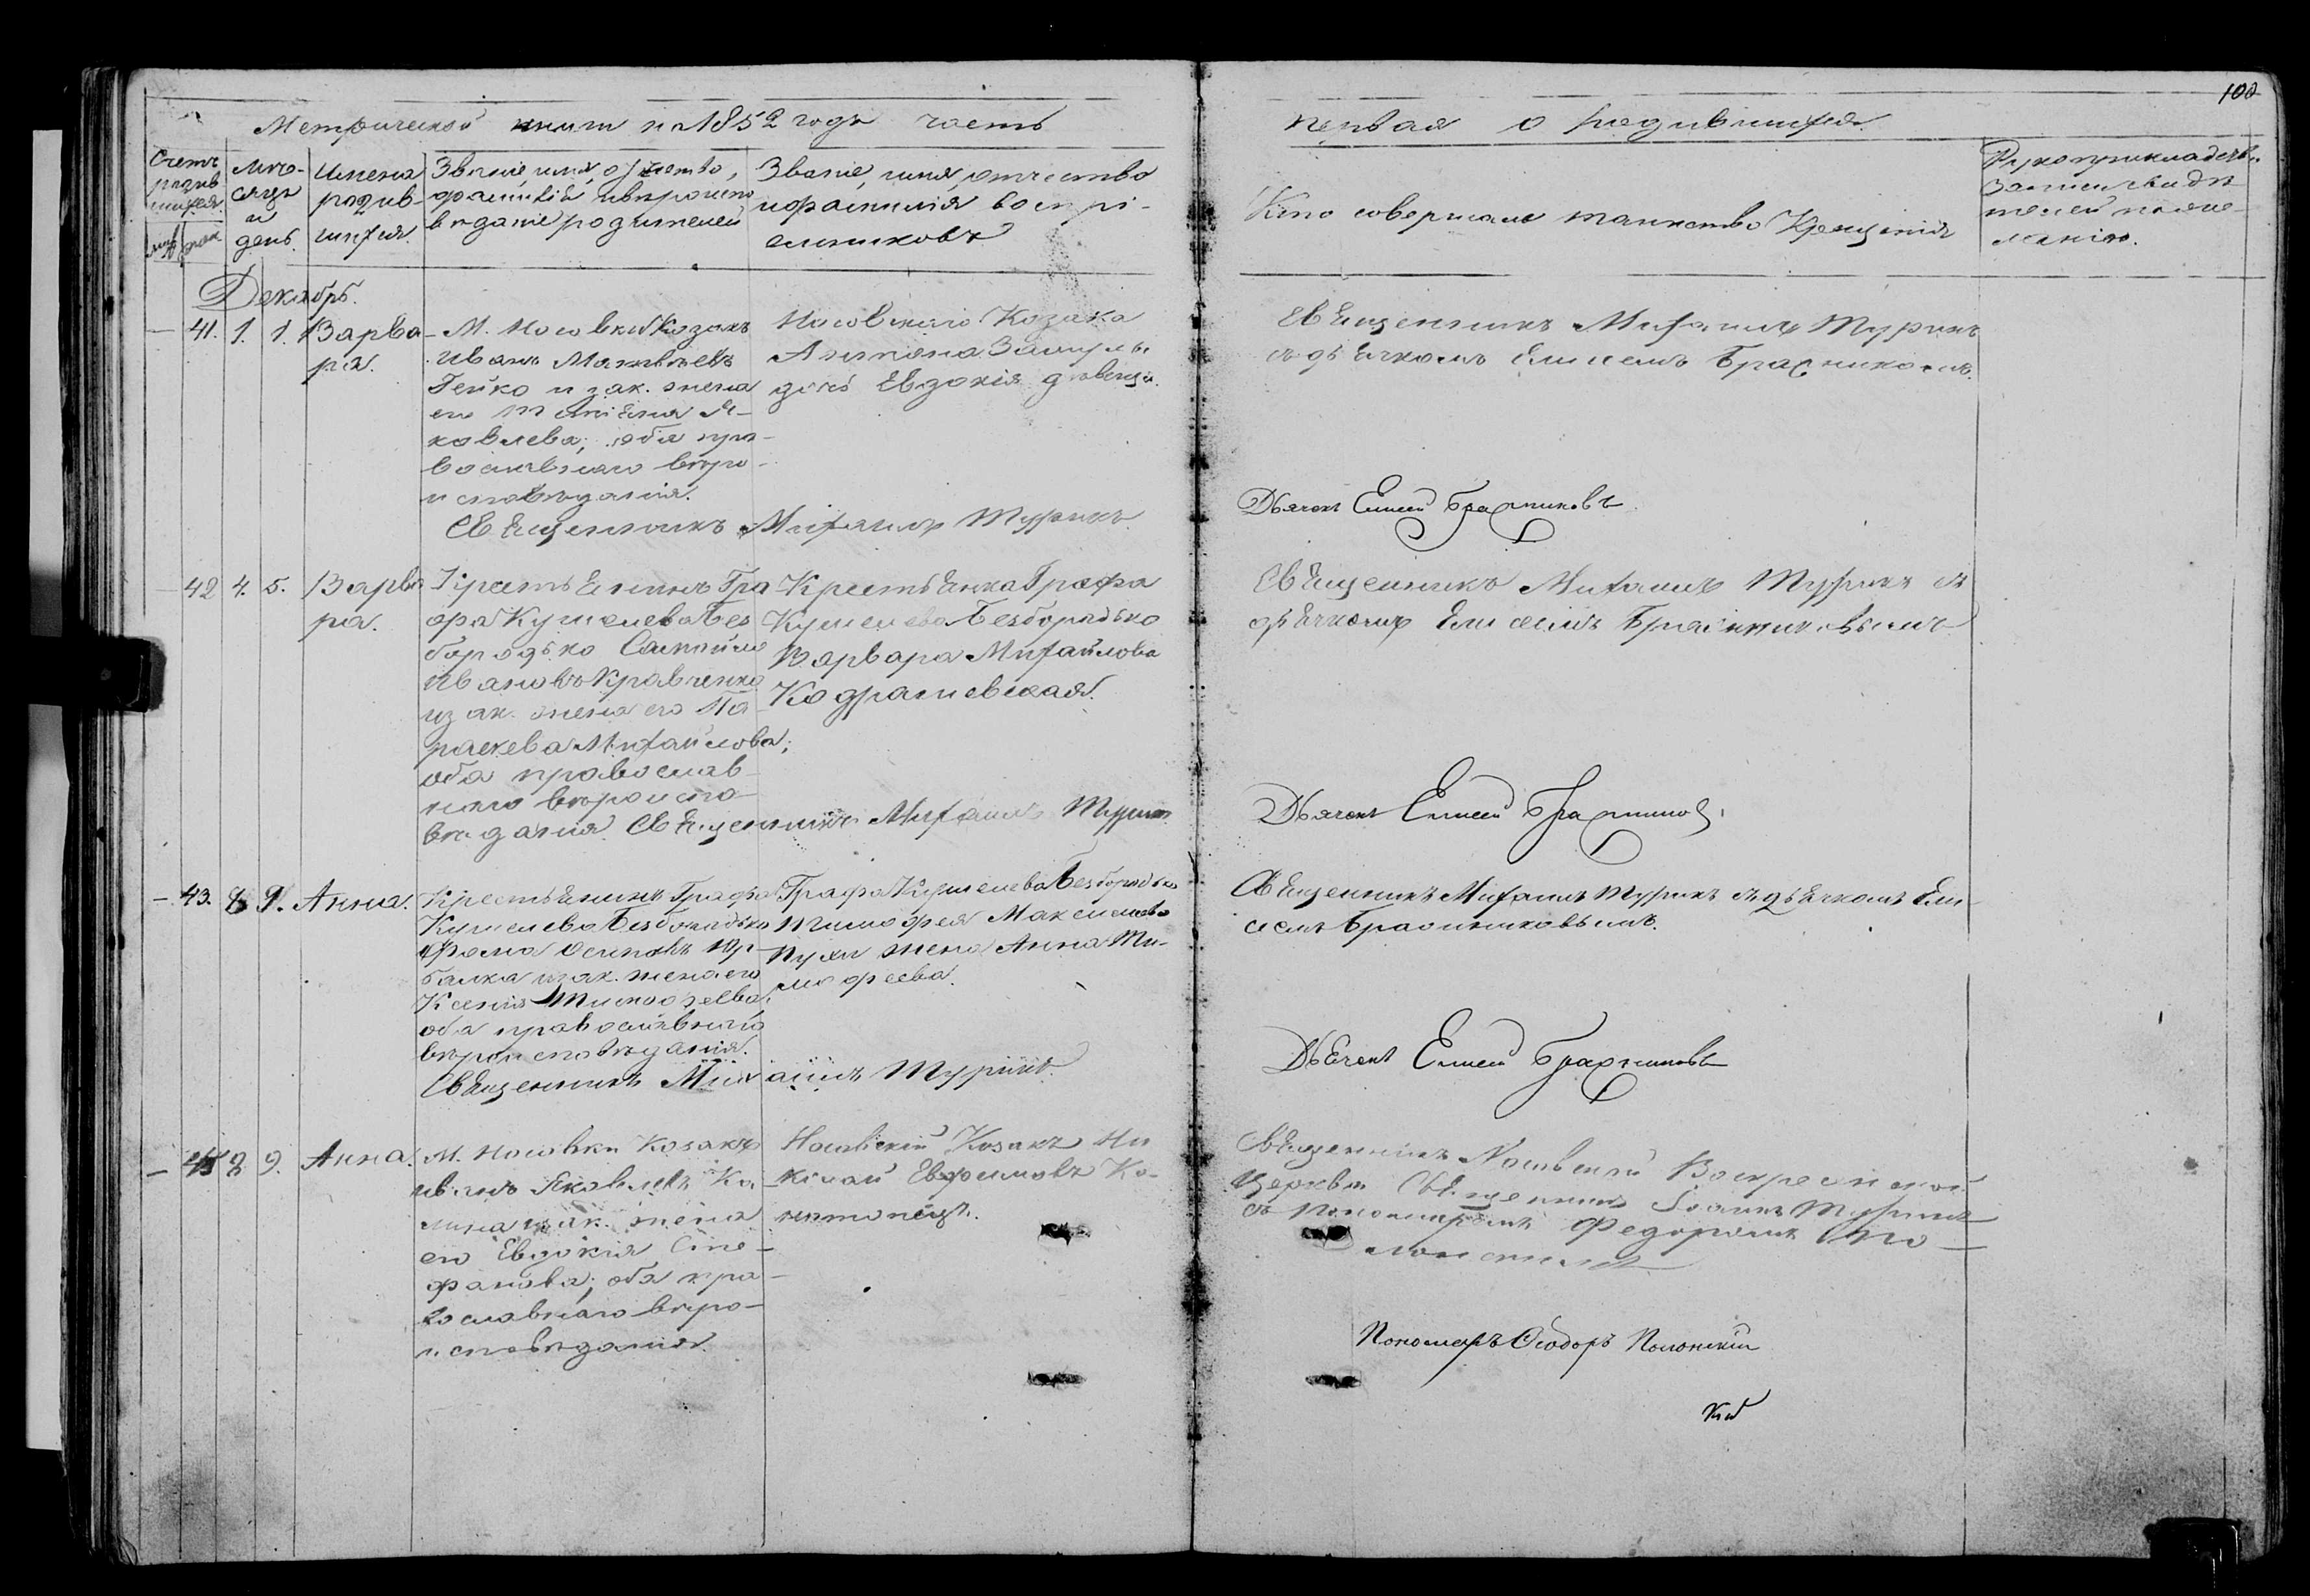 100
Метрической книги на 1852 годъ часть
первая о родившихся.
Счетъ родив-
шихся.
муж. жен.
Мѣ-
сяцъ
и
день.
Имена
родив-
шихся.
Званіе, имя, отчество,
фамилія и вѣроиспо-
вѣданіе родителей
Званіе, имя, отчество
и фамилія воспрі-
емниковъ
Кто совершалъ таинство Крещенія
Рукоприкладств.
записи свидѣ-
телей по же-
ланію.
Декабрь.
— 41. 1. 1. Варва-
ра.
М. Носовки Козакъ
Иванъ Матвѣевъ
Гейко и зак. жена
его Татіяна Я-
ковлева; оба пра-
вославнаго вѣро-
исповѣданія.
Носовскаго Козака
дочь Евдокія дѣвица.
Священникъ Михаилъ Турикъ
Священникъ Михаилъ Турикъ
съ дьячкомъ Елисеемъ Бражниковымъ.
Дьячекъ Елисей Бражниковъ
42 4. 5. Варва
ра.
Крестьянинъ Гра
фа Кушелева Без
бородько Самойло
Ивановъ Кравченко
и зак. жена его Па
раскева Михайлова;
оба православ-
наго вѣроиспо-
вѣданія. Священникъ Михаилъ Турикъ
Крестьянка Графа
Кушелева Безбородько
Варвара Михайлова
Священникъ Михаилъ Турикъ съ
дьячкомъ Елисеемъ Бражниковымъ
Дьячекъ Елисей Бражниковъ
— 43. 8 9. Анна.
Крестьянинъ Графа
Кушелева Безбородько
Фома Осиповъ
и зак. жена его
Ксенія Тимофеева,
оба православнаго
вѣроисповѣданія.
Графа Кушелева Безбородько
Тимофея Максимова
жена Анна Ти-
мофеева.
Священникъ Михаилъ Турикъ.
Священникъ Михаилъ Турикъ съ дьячкомъ Ели
сеемъ Бражниковымъ.
Дьячекъ Елисей Бражниковъ
— 8 9. Анна.
М. Носовки Козакъ
Иванъ Яковлевъ Ка-
лина и зак. жена
его Евдокія Сте-
фанова; оба пра-
вославнаго вѣро-
исповѣданія.
Носовскій Козакъ Ни
колай Евфимовъ Ко-
нотопецъ.
Священникъ Носовской Воскресенской
Церкви Священникъ Іоаннъ Турикъ
съ пономаремъ Федоромъ По-
лонскимъ
Пономарь Ѳеодоръ Полонскій